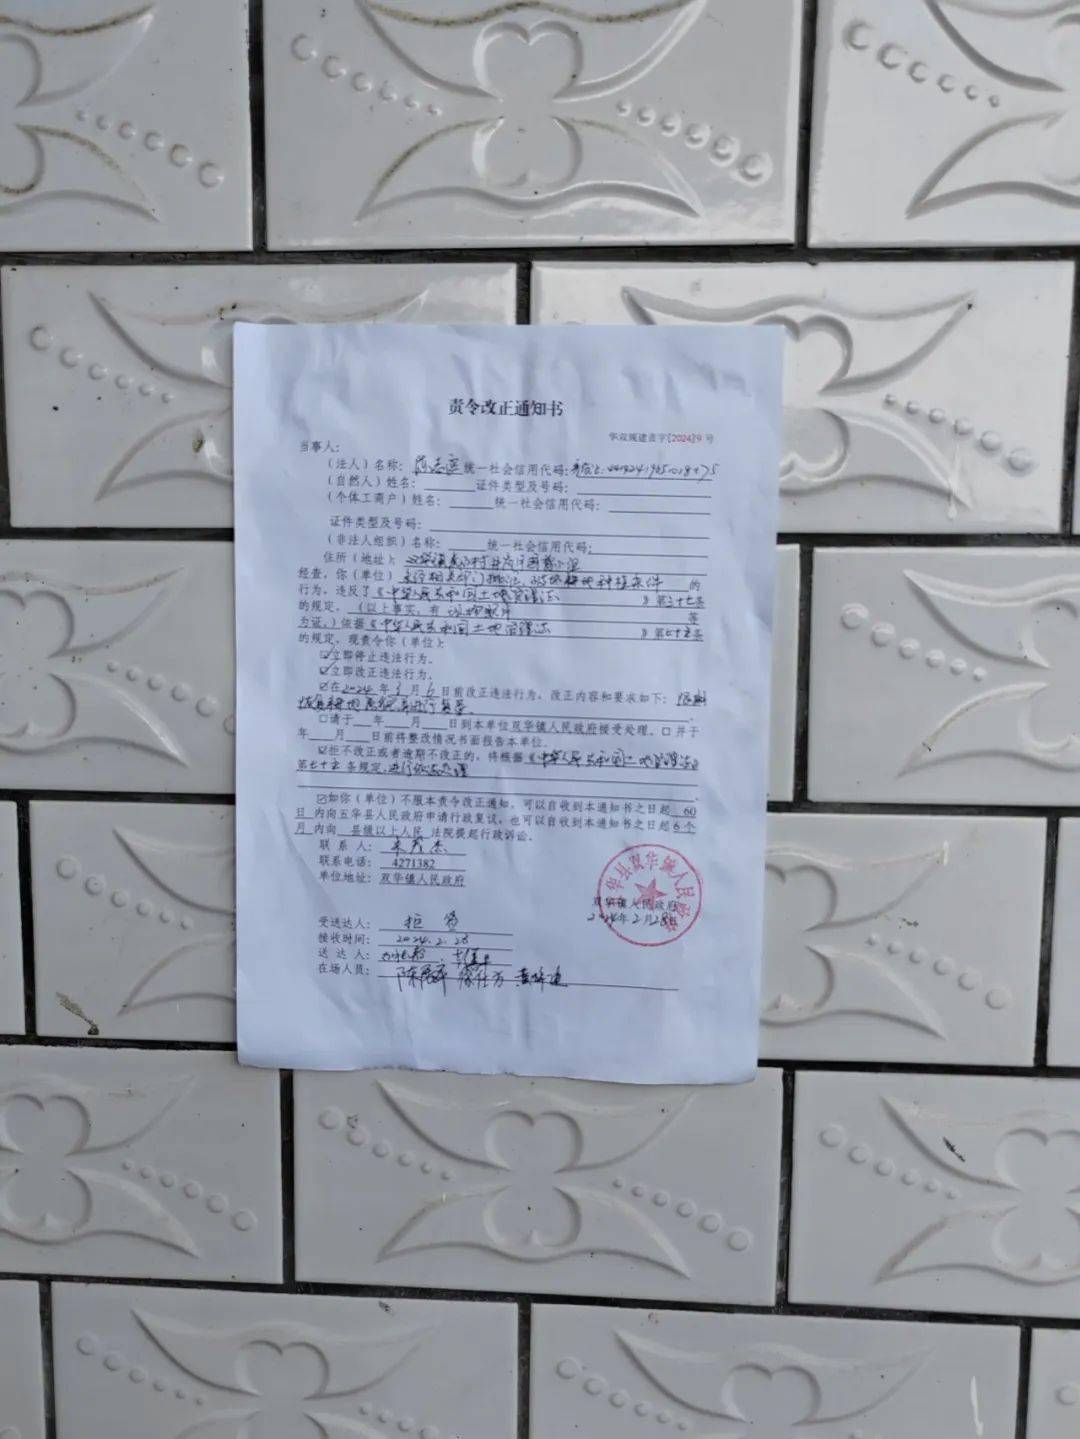 责令改正通知书
华双规建责字[2024]9 号
当事人：
（法人）名称： 统一社会信用代码：
（自然人）姓名： 证件类型及号码：
（个体工商户）姓名： 统一社会信用代码：
证件类型及号码：
（非法人组织）名称： 统一社会信用代码：
住所（地址）：双华镇
经查，你（单位）未经相关部门批准，破坏耕地种植条件 的
行为，违反了《中华人民共和国土地管理法 》第三十七条
的规定，（以上事实，有 等
为证，）依据《中华人民共和国土地管理法 》第七十五条
的规定，现责令你（单位）：
☑立即停止违法行为。
☑立即改正违法行为。
☑在2024年3月6日前改正违法行为，改正内容和要求如下：
☐请于 年 月 日到本单位双华镇人民政府接受处理。☐并于
年 月 日前将整改情况书面报告本单位。
☑拒不改正或者逾期不改正的，将根据《中华人民共和国土地管理法》
第七十五条规定，进行依法处理
☑如你（单位）不服本责令改正通知，可以自收到本通知书之日起 60
日内向五华县人民政府申请行政复议，也可以自收到本通知书之日起 6 个
月内向 县级以上人民 法院提起行政诉讼。
联 系 人：
联系电话： 4271382
单位地址：双华镇人民政府
五华县双华镇人民政府
双华镇人民政府
2024年2月28日
受送达人： 拒签
接收时间： 2024.2.28
送 达 人：
在场人员：